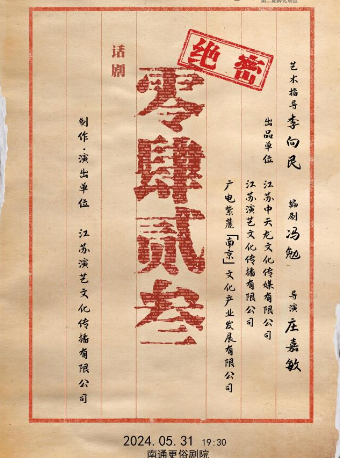 绝密
话剧
零肆贰叁
艺术指导 李向民 编剧 冯勉 导演 庄嘉敏
出品单位 江苏中天龙文化传媒有限公司
江苏演艺文化传播有限公司
广电紫荆「南京」文化产业发展有限公司
制作·演出单位 江苏演艺文化传播有限公司
2024.05.31 19:30
南通更俗剧院